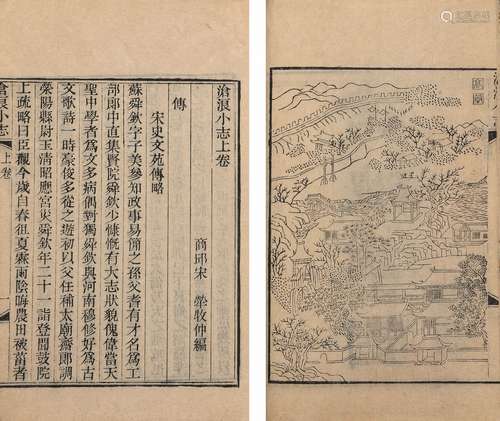 滄浪小志上卷
商邱宋 犖牧仲編
傳
宋史文苑傳略
蘇舜欽字子美參知政事易簡之孫父耆有才名爲工
部郎中直集賢院舜欽少慷慨有大志狀貌傀偉當天
聖中學者爲文多病偶對獨舜欽與河南穆修好爲古
文歌詩一時豪俊多從之遊初以父任補太廟齋郎調
滎陽縣尉玉清昭應宮災舜欽年二十一詣登聞鼓院
上疏略曰臣觀今歲自春徂夏霖雨陰晦農田被菑者
滄浪小志 上卷